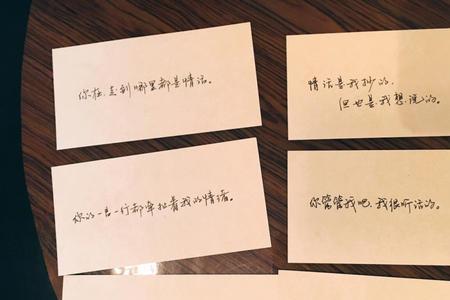 你在，走到哪里都是情话。
情话是我抄的，
但也是我想说的。
你的一言一行都牵扯着我的情绪。
你管管我吧，我很听话的。